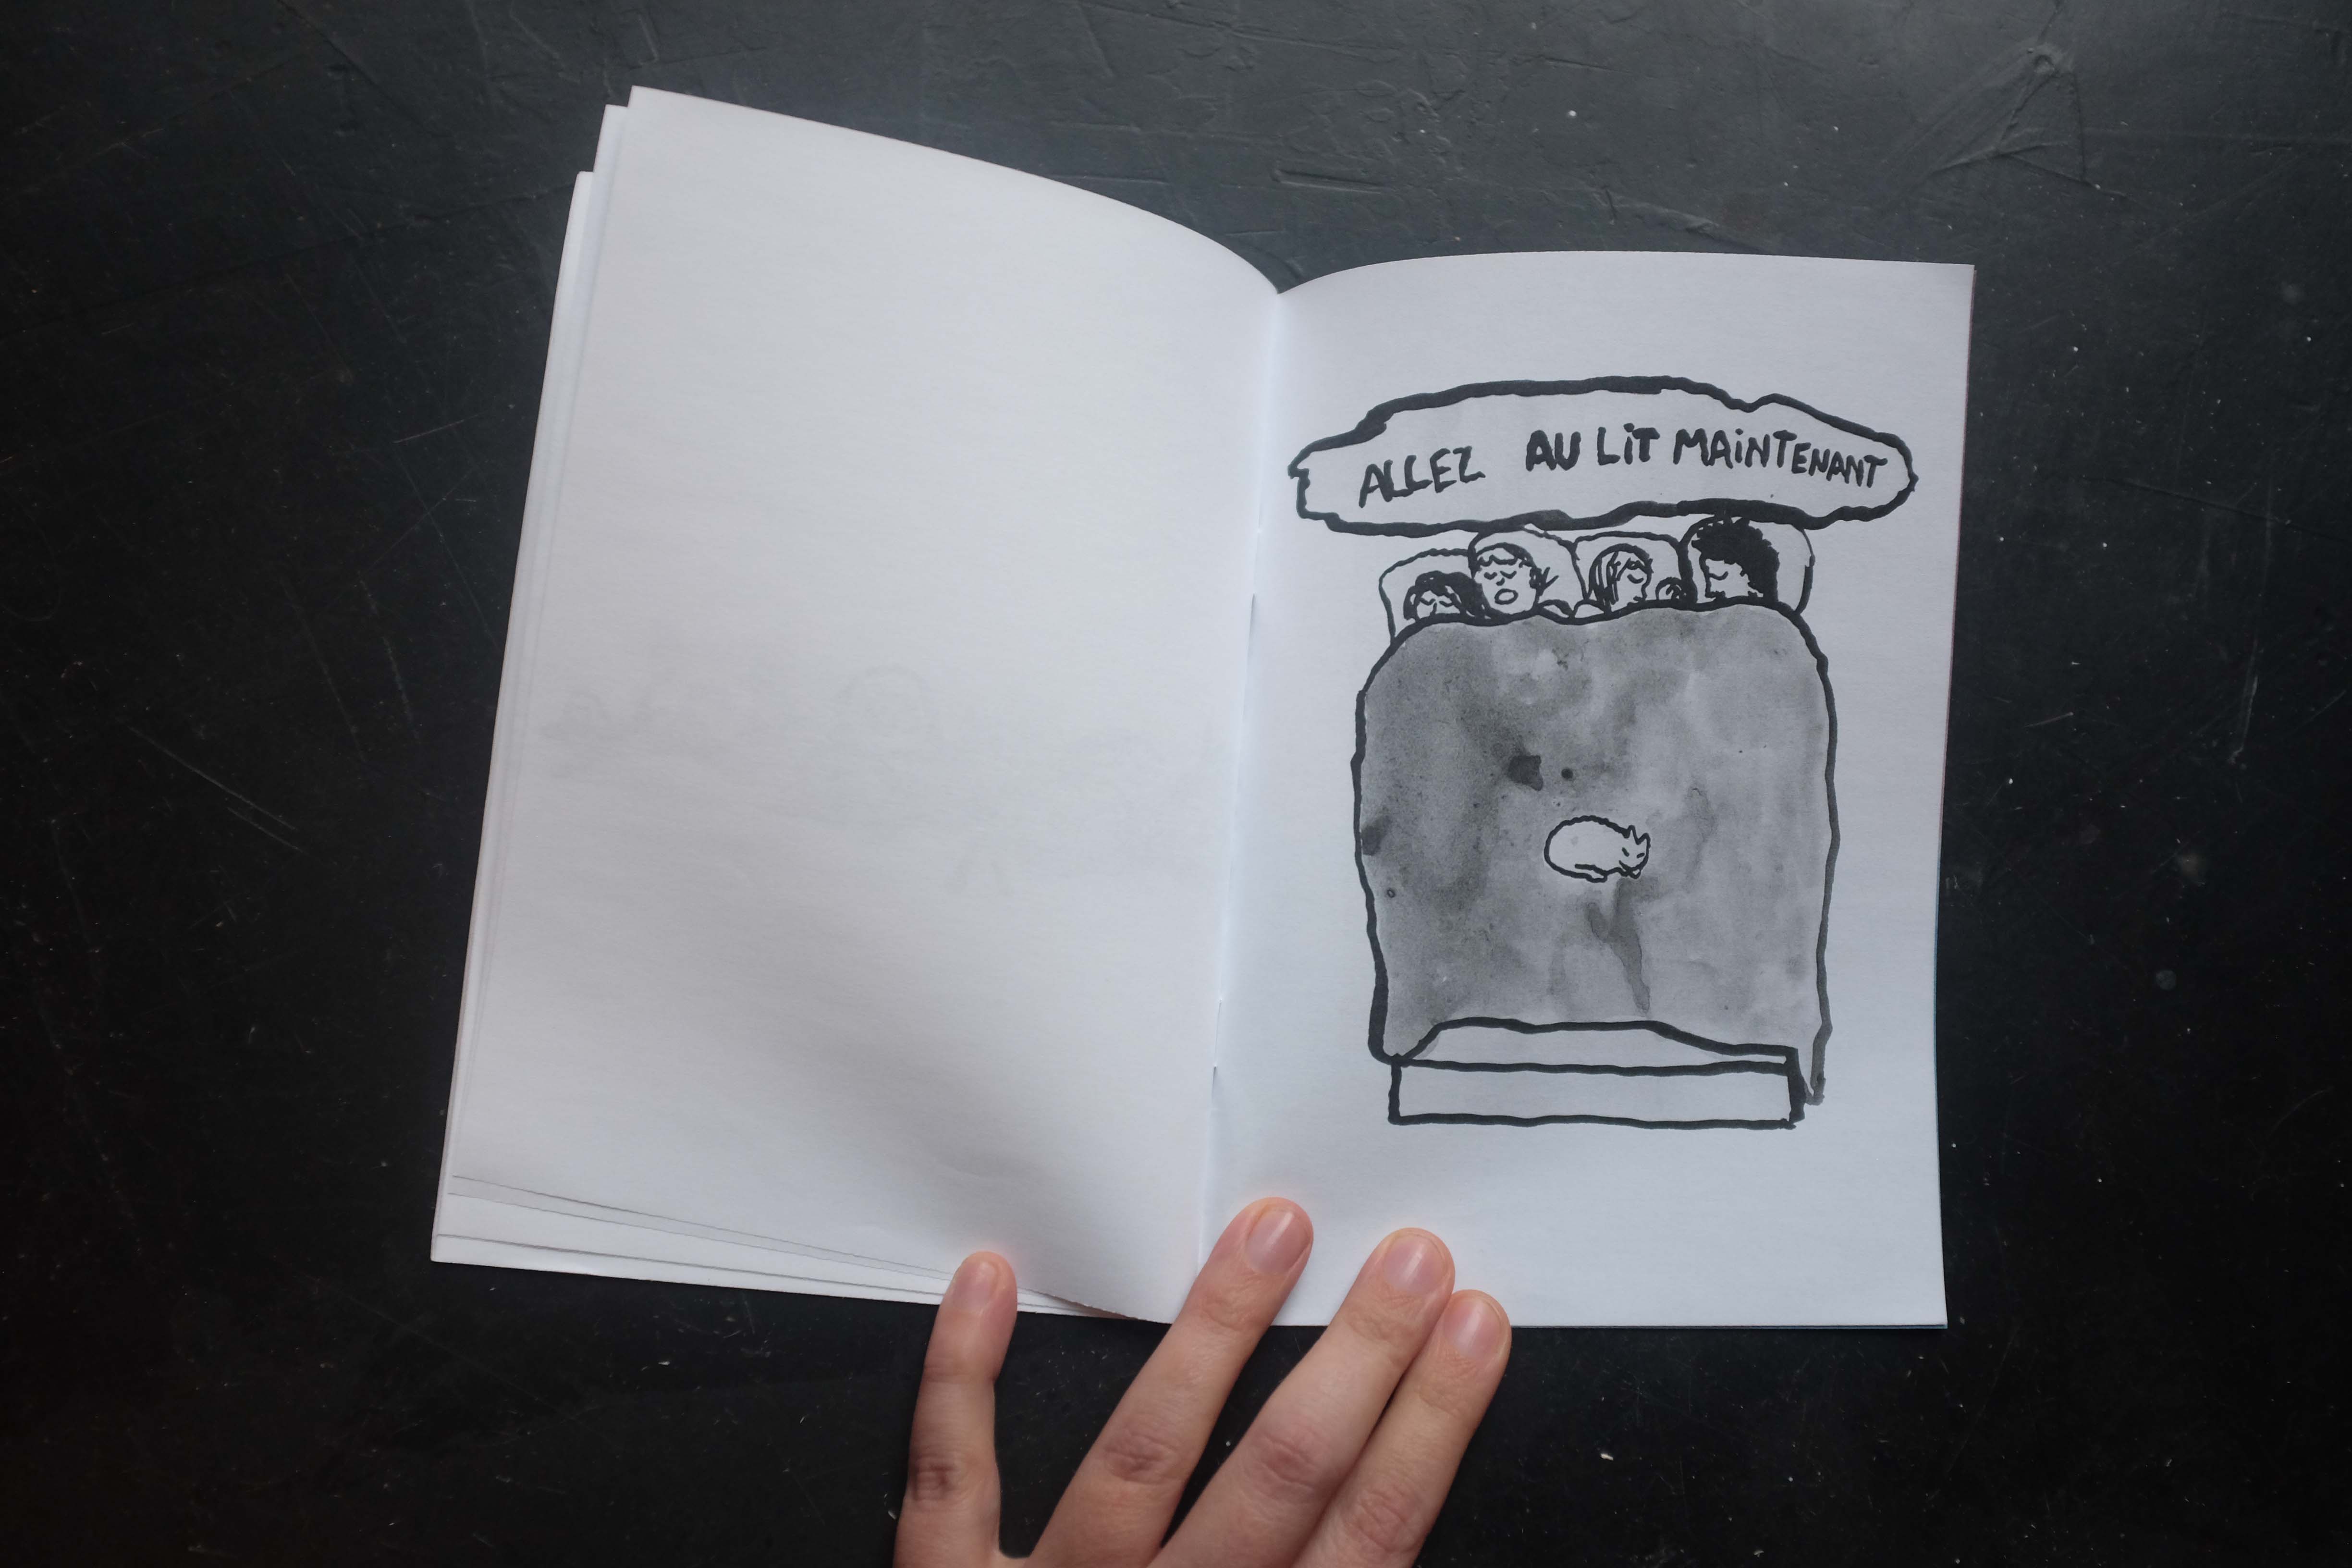 ALLEZ AU LiT MAiNTENANT